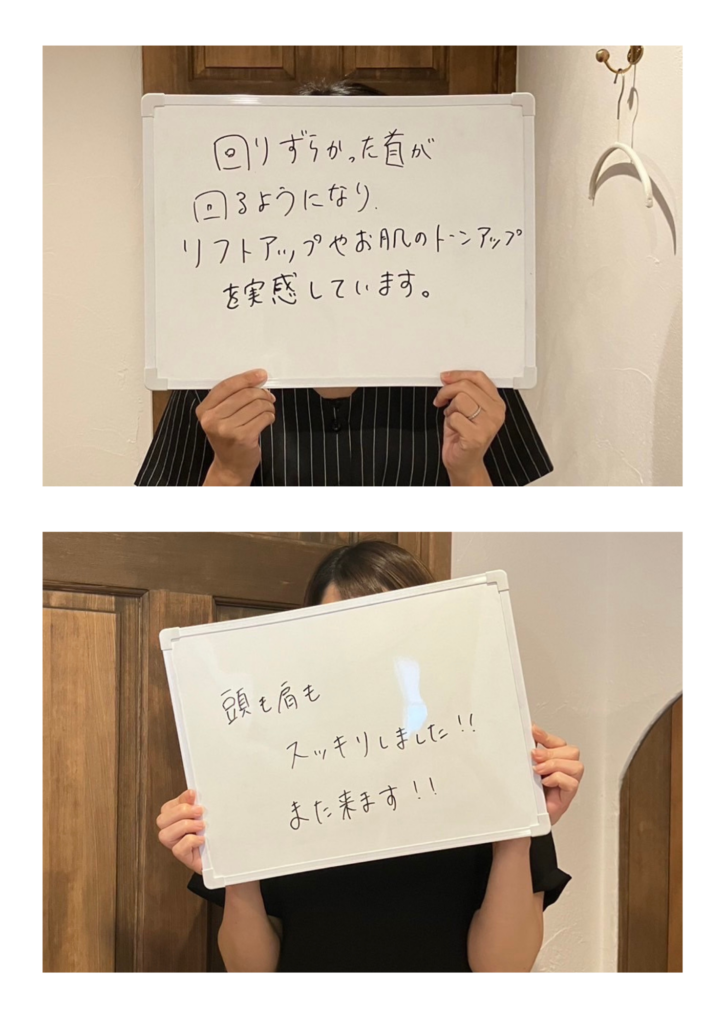 回りずらかった首が
回るようになり、
リフトアップやお肌のトーンアップ
を実感しています。
頭も肩も
スッキリしました!!
また来ます!!